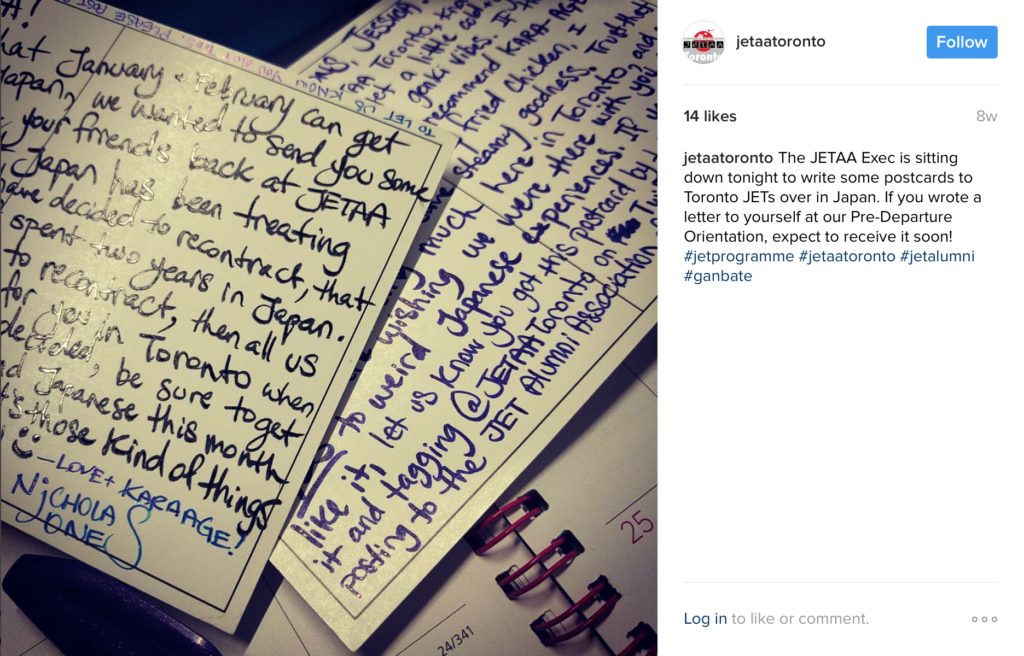 A!
hat January + February can get
Japan, we wanted to send you some
your friends back at JETAA
Japan has been treating
have decided to recontract, that
spent two years in Japan.
to recontract, then all us
for you in Toronto when
decided, be sure to get
Japanese this month
those kind of things
—LOVE + KARAAGE!
NiCHOLAS
JONES
TO LET US KNOW YOU
PLEASE POST
JESSICA
Toronto,
let a
genki vibes. If
recommend KARA-AGE
fried chicken, I
steamy goodness. Truth
here in Toronto,
much
wishing we were there with you, and
to weird Japanese experiences. IF
like it, let us know you got this postcard by
it and tagging @JETAAToronto on
posting to the JET Alumni Association
25
24/341
JETAA
Toronto
jetaatoronto
Follow
14 likes
8w
jetaatoronto The JETAA Exec is sitting
down tonight to write some postcards to
Toronto JETs over in Japan. If you wrote a
letter to yourself at our Pre-Departure
Orientation, expect to receive it soon!
#jetprogramme #jetaatoronto #jetalumni
#ganbate
Log in to like or comment.